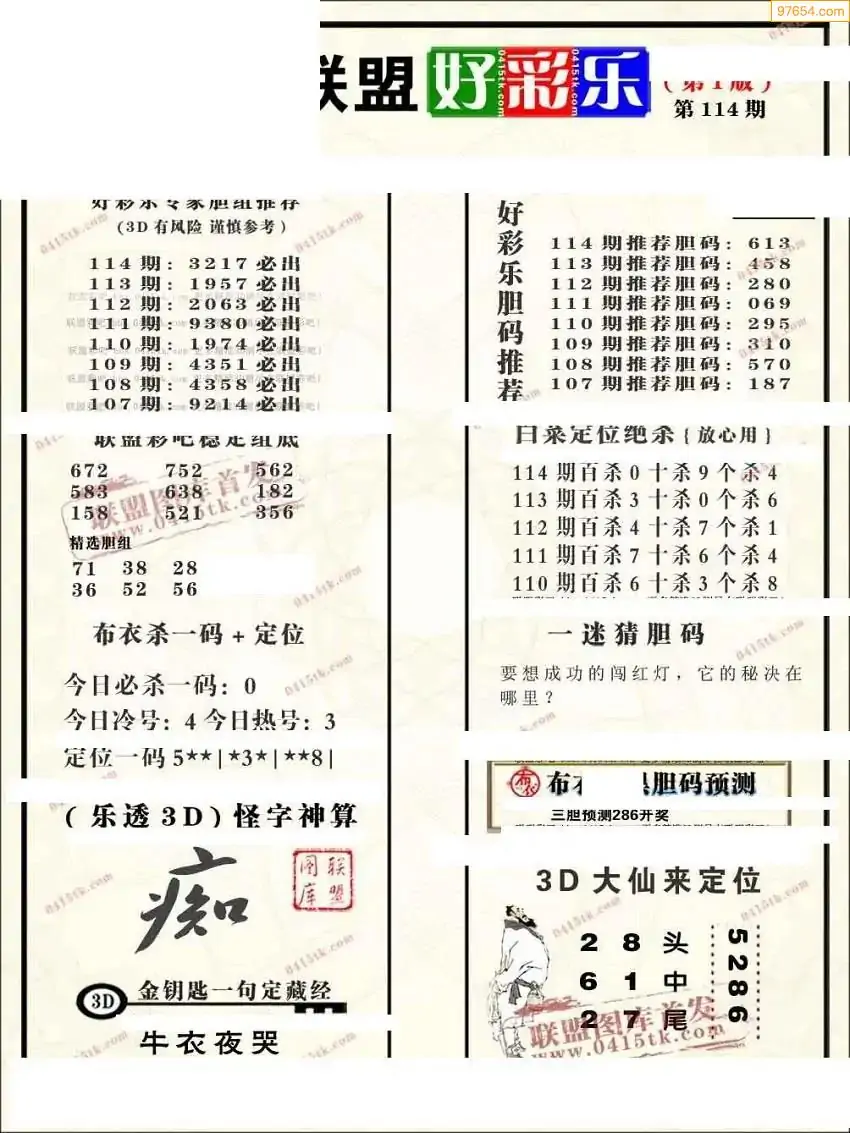 97654.com
联盟好彩乐
(第1版)
第114期
好彩乐专家胆组推荐
(3D有风险 谨慎参考)
114期:3217必出
113期:1957必出
112期:2063必出
111期:9380必出
110期:1974必出
109期:4351必出
108期:4358必出
107期:9214必出
联盟彩吧稳定组底
672 752 562
583 638 182
158 521 356
精选胆组
71 38 28
36 52 56
联盟图库首发
www.0415tk.com
布衣杀一码+定位
今日必杀一码:0
今日冷号:4 今日热号:3
定位一码 5**|*3*|**8|
(乐透3D)怪字神算
痴
联盟图库
3D 金钥匙一句定藏经
牛衣夜哭
好彩乐胆码推荐
114期推荐胆码:613
113期推荐胆码:458
112期推荐胆码:280
111期推荐胆码:069
110期推荐胆码:295
109期推荐胆码:310
108期推荐胆码:570
107期推荐胆码:187
白菜定位绝杀{放心用}
114期百杀0十杀9个杀4
113期百杀3十杀0个杀6
112期百杀4十杀7个杀1
111期百杀7十杀6个杀4
110期百杀6十杀3个杀8
一迷猜胆码
要想成功的闯红灯,它的秘决在
哪里?
布衣 胆码预测
三胆预测286开奖
3D大仙来定位
2 8 头
6 1 中
2 7 尾
5286
联盟图库首发
www.0415tk.com